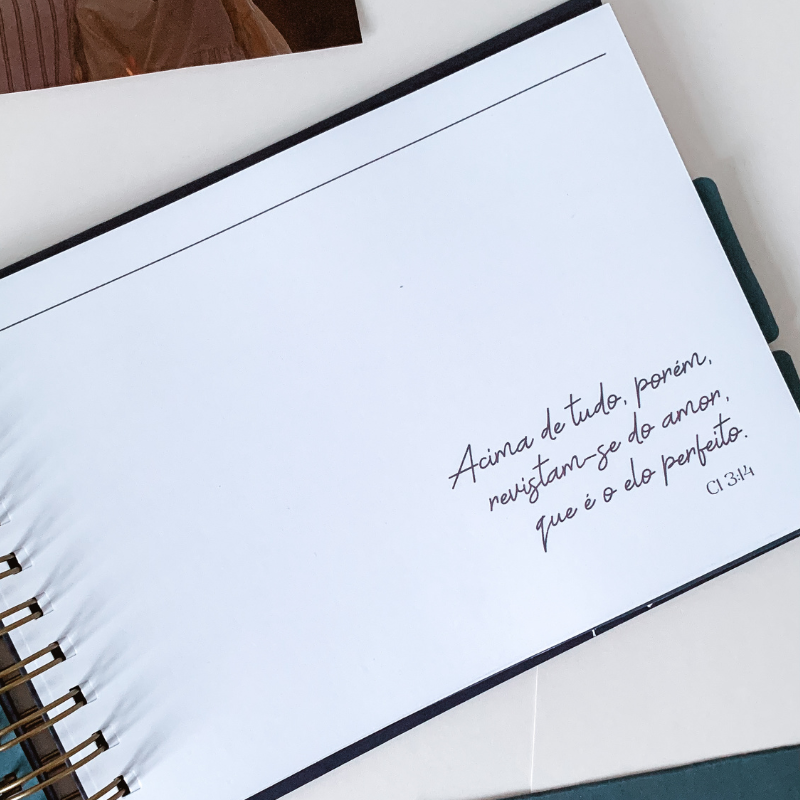 Acima de tudo, porém,
revistam-se do amor,
que é o elo perfeito.
Cl 3:14